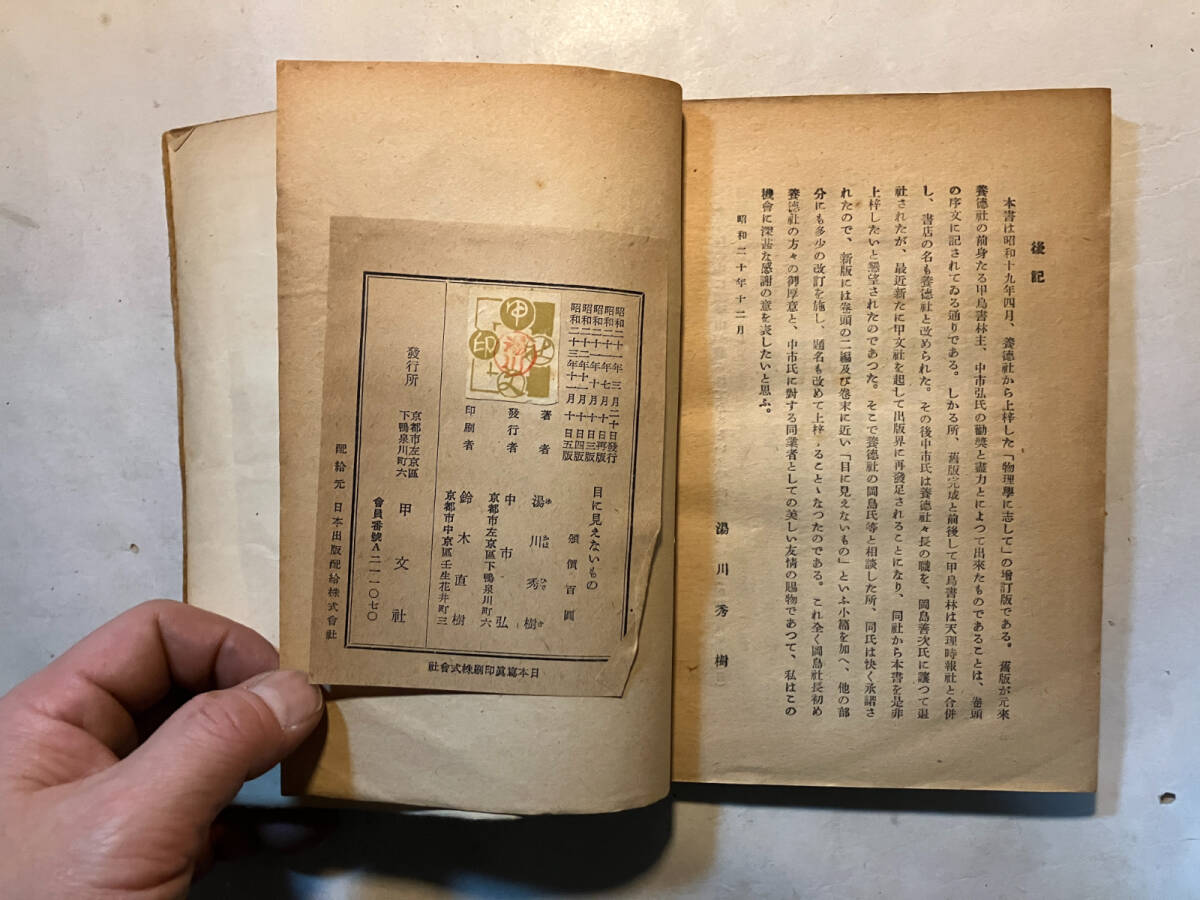 後記
本書は昭和十九年四月、養德社から上梓した「物理學に志して」の增訂版である。舊版が元來
養德社の前身たる甲鳥書林主、中市弘氏の勸奬と盡力とによつて出來たものであることは、卷頭
の序文に記されてゐる通りである。しかる所、舊版完成と前後して甲鳥書林は天理時報社と合併
し、書店の名も養德社と改められた。その後中市氏は養德社々長の職を、岡島善次氏に讓つて退
社されたが、最近新たに甲文社を起して出版界に再發足されることになり、同社から本書を是非
上梓したいと懇望されたのであつた。そこで養德社の岡島氏等と相談した所、同氏は快く承諾さ
れたので、新版には卷頭の二編及び卷末に近い「目に見えないもの」といふ小篇を加へ、他の部
分にも多少の改訂を施し、題名も改めて上梓することゝなつたのである。これ全く岡島社長初め
養德社の方々の御厚意と、中市氏に對する同業者としての美しい友情の賜物であつて、私はこの
機會に深甚な感謝の意を表したいと思ふ。
昭和二十年十二月
湯川秀樹
昭和二十一年三月二十日發行
昭和二十一年七月十日再版
昭和二十一年十月十日三版
昭和二十二年十一月十日四版
昭和二十三年十一月十日五版
目に見えないもの
頒價百圓
著者 湯川秀樹
發行者 中市弘
京都市左京區下鴨泉川町六
印刷者 鈴木直樹
京都市中京區壬生花井町三
甲文社印
湯川
發行所
京都市左京區
下鴨泉川町六
甲文社
會員番號A二一一〇七〇
配給元 日本出版配給株式會社
日本寫眞印刷株式會社